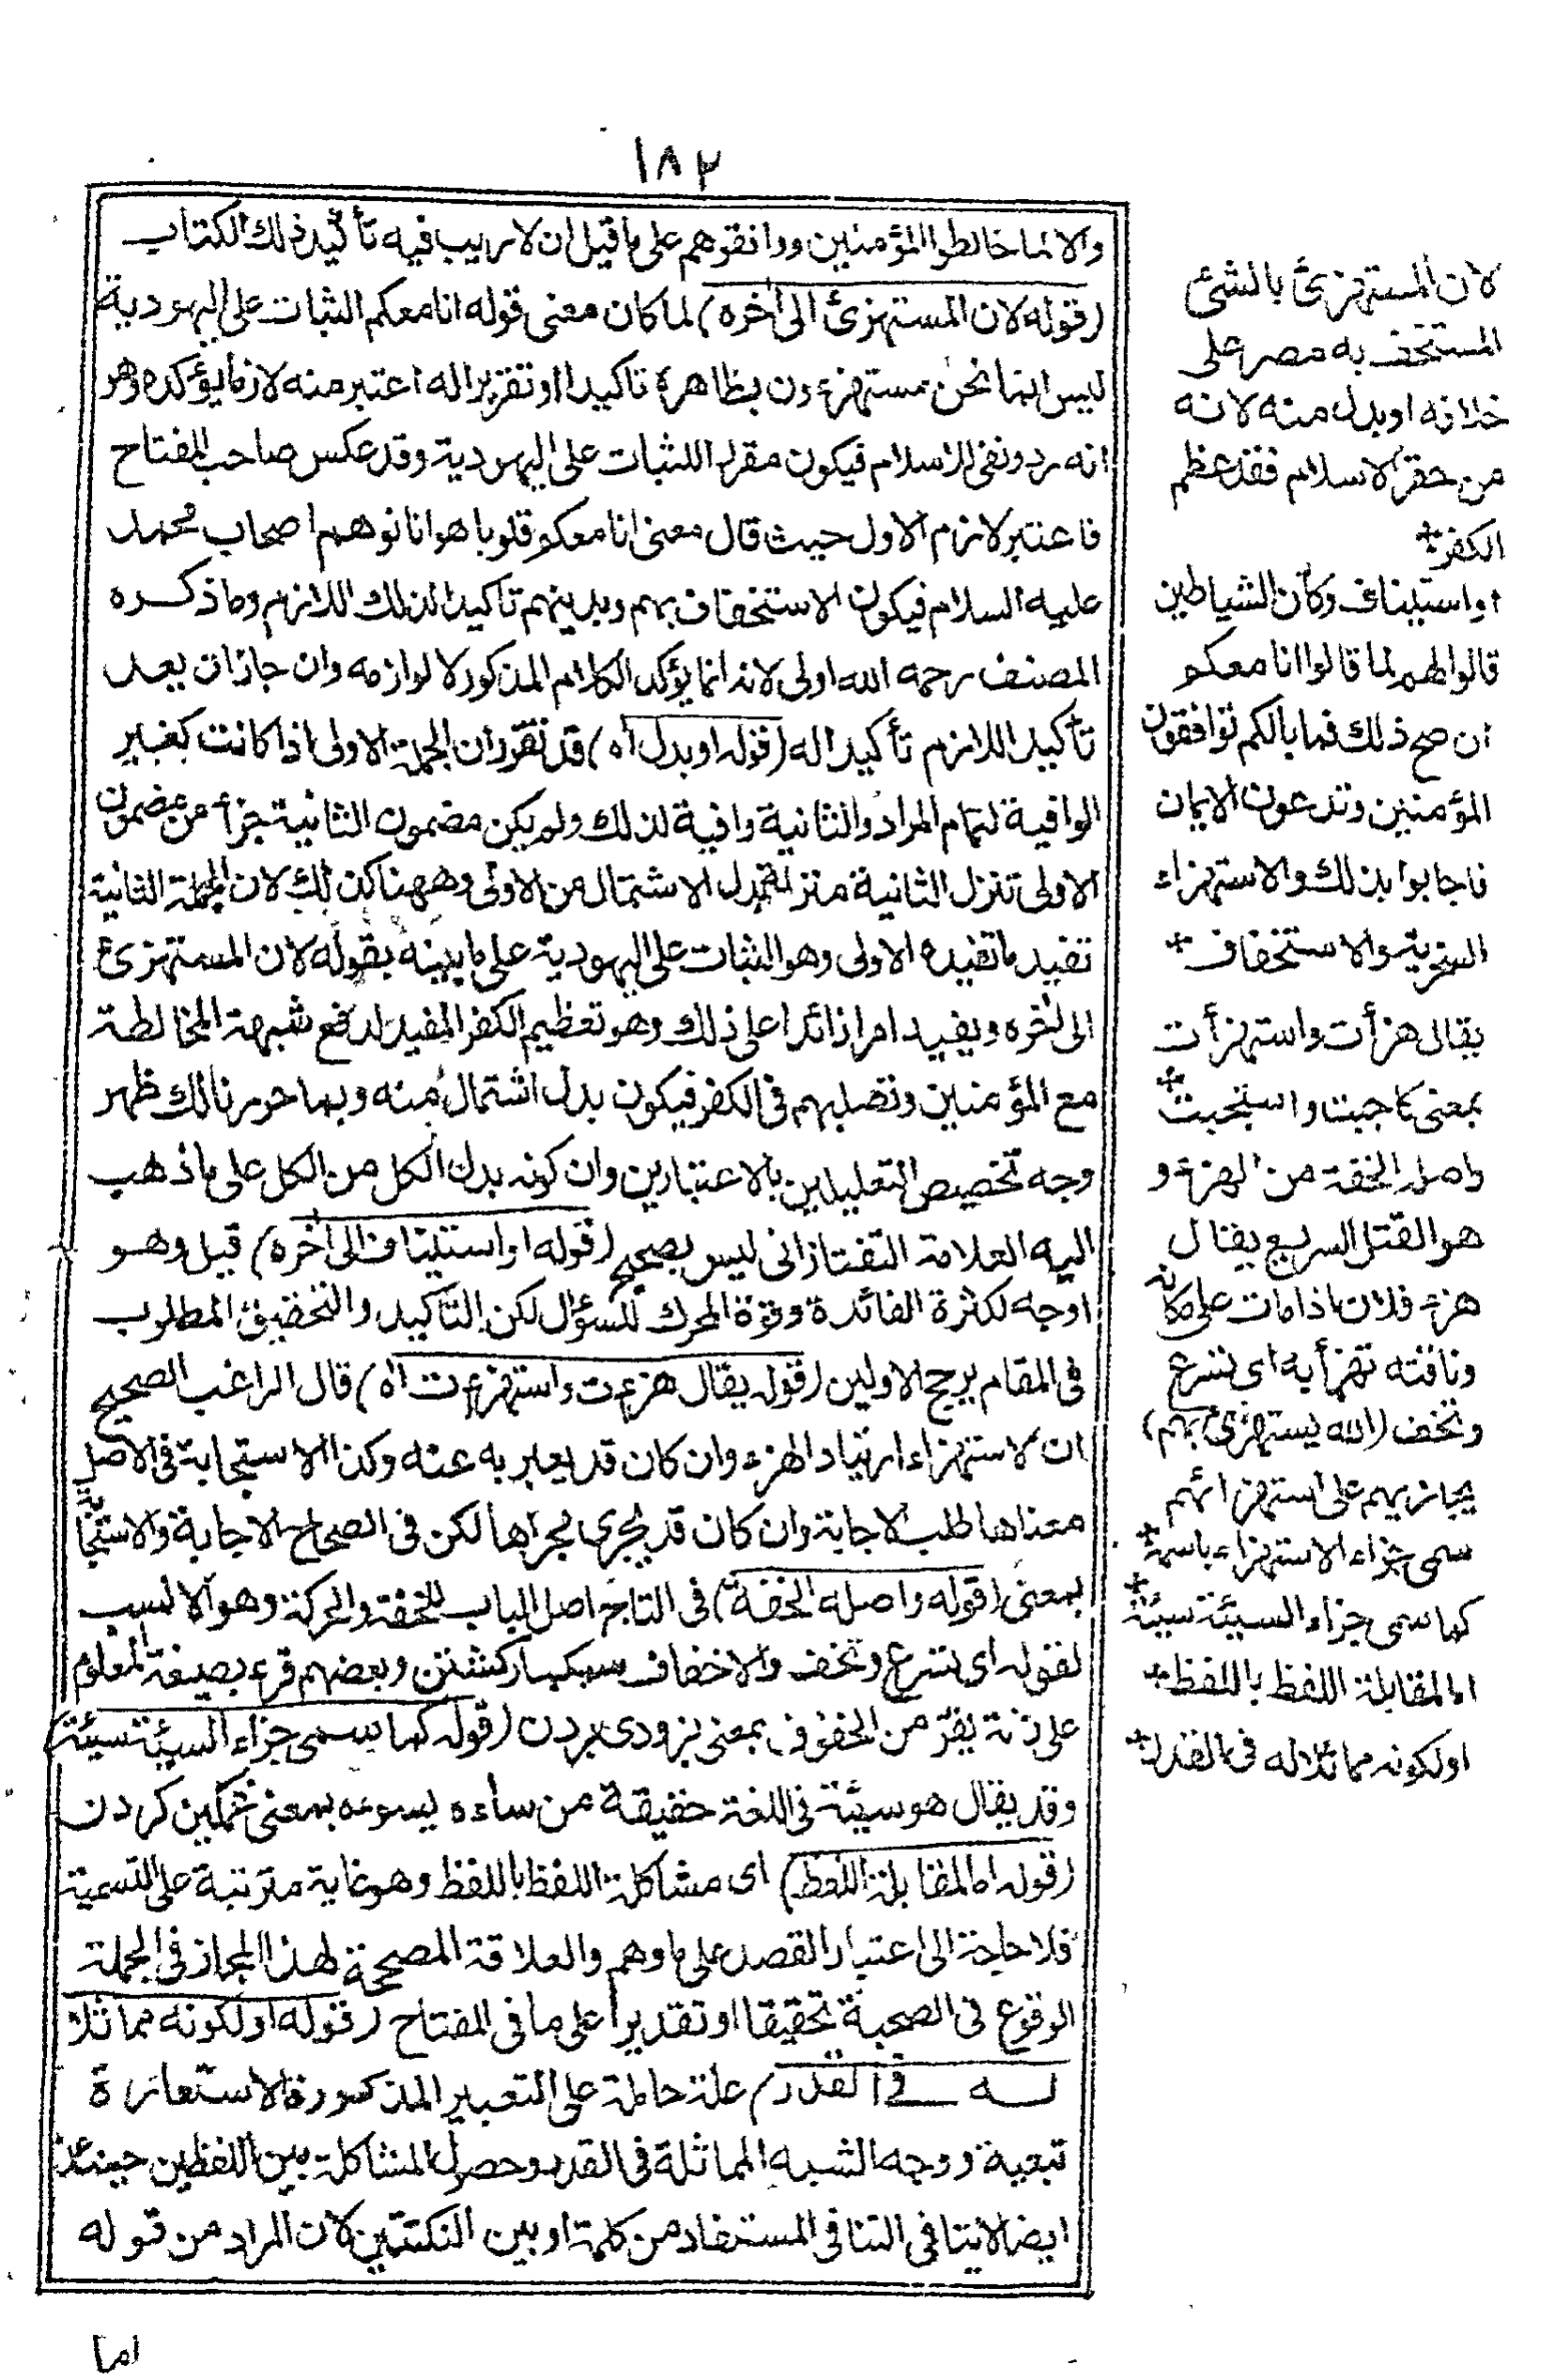 ١٨٢
والا لما خالطوا المؤمنين ووافقوهم على ما قيل ان لا ريب فيه تأكيد ذلك الكتاب
(قوله لان المستهزئ الى آخره) لما كان معنى قوله انا معكم الثبات على اليهودية
ليس انما نحن مستهزءون بظاهره تاكيدا او تقريرا له اعتبر منه لازما يؤكده وهو
انه رد ونفى للاسلام فيكون مقررا للثبات على اليهودية وقد عكس صاحب المفتاح
فاعتبر لازم الاول حيث قال معنى انا معكم قلوبا هو انا نوهم اصحاب محمد
عليه السلام فيكون الاستخفاف بهم وبدينهم تاكيدا لذلك اللازم وما ذكره
المصنف رحمه الله اولى لانه انما يؤكد الكلام المذكور لا لوازمه وان جاز ان يعد
تأكيد اللازم تأكيدا له (قوله او بدل اه) قد تقرر ان الجملة الاولى اذا كانت كغير
الوافية لتمام المراد والثانية وافية لذلك ولم يكن مضمون الثانية جزأ من مضمون
الاولى تنزل الثانية منزلة بدل الاشتمال من الاولى وههنا كذلك لان الجملة الثانية
تفيد ما تفيده الاولى وهو الثبات على اليهودية على ما بينه بقوله لان المستهزئ
الى آخره ويفيد امرا زائدا على ذلك وهو تعظيم الكفر المفيد لدفع شبهة المخالطة
مع المؤمنين وتصلبهم فى الكفر فيكون بدل اشتمال منه وبما حررنا لك ظهر
وجه تخصيص التعليلين بالاعتبارين وان كونه بدل الكل من الكل على ما ذهب
اليه العلامة التفتازانى ليس بصحيح (قوله او استيناف الى آخره) قيل وهو
اوجه لكثرة الفائدة وقوة المحرك للسؤال لكن التاكيد والتحقيق المطلوب
فى المقام يرجح الاولين (قوله يقال هزءت واستهزءت اه) قال الراغب الصحيح
ان الاستهزاء ارتياد الهزء وان كان قد يعبر به عنه وكذا الاستجابة فى الاصل
معناها طلب الاجابة وان كان قد يجرى مجراها لكن فى الصحاح الاجابة والاستجابة
بمعنى (قوله واصله الخفة) فى التاج اصل الباب للخفة والحركة وهو الانسب
لقوله اى تسرع وتخف والاخفاف سبكبار گشتن وبعضهم قرء بصيغة المعلوم
على زنة يفر من الخفوف بمعنى بزودى بردن (قوله كما يسمى جزاء السيئة سيئة)
وقد يقال هو سيئة فى اللغة حقيقة من ساءه يسوءه بمعنى غمگين كردن
(قوله اما لمقابلة اللفظ) اى مشاكلة اللفظ باللفظ وهو غاية مترتبة على التسمية
فلا حاجة الى اعتبار القصد على ما وهم والعلاقة المصححة لهذا المجاز فى الجملة
الوقوع فى الصحبة تحقيقا او تقديرا على ما فى المفتاح (قوله او لكونه مماثلا
له فى القدر) علة حاملة على التعبير المذكور فالاستعارة
تبعية ووجه الشبه المماثلة فى القدر وحصول المشاكلة بين اللفظين حينئذ
ايضا لا ينافى التنافى المستفاد من كلمة او بين النكتتين لان المراد من قوله
اما
لان المستهزئ بالشئ
المستخف به مصر على
خلافه او بدل منه لانه
من حقر الاسلام فقد عظم
الكفر
او استيناف وكأن الشياطين
قالوا لهم لما قالوا انا معكم
ان صح ذلك فما بالكم توافقون
المؤمنين وتدعون الايمان
فاجابوا بذلك والاستهزاء
السخرية والاستخفاف
يقال هزأت واستهزأت
بمعنى كاجبت واستجبت
واصله الخفة من الهزء و
هو القتل السريع يقال
هزء فلان اذا مات على مكانه
وناقته تهزأ به اى تسرع
وتخف (الله يستهزئ بهم)
يجازيهم على استهزائهم
سمى جزاء الاستهزاء باسمه
كما سمى جزاء السيئة سيئة
اما لمقابلة اللفظ باللفظ
او لكونه مماثلا له فى القدر